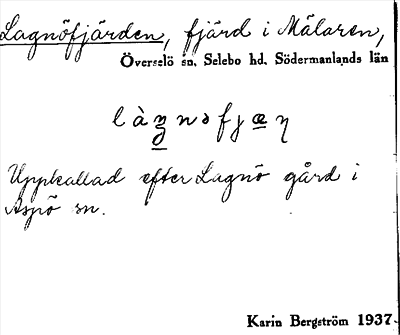 Lagnöfjärden, fjärd i Mälaren,
Överselö sn, Selebo hd, Södermanlands län
Uppkallad efter Lagnö gård i
Aspö sn.
Karin Bergström 1937.